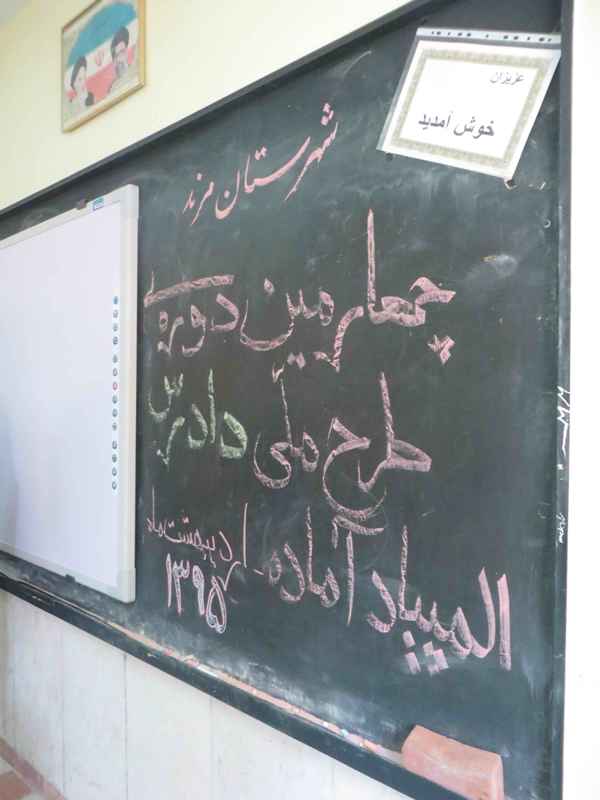 عزیزان
خوش آمدید
شهرستان مرند
چهارمین دوره‌ی
طرح ملّی دادرس
المپیاد آماده - اردیبهشت ماه
۱۳۹۵